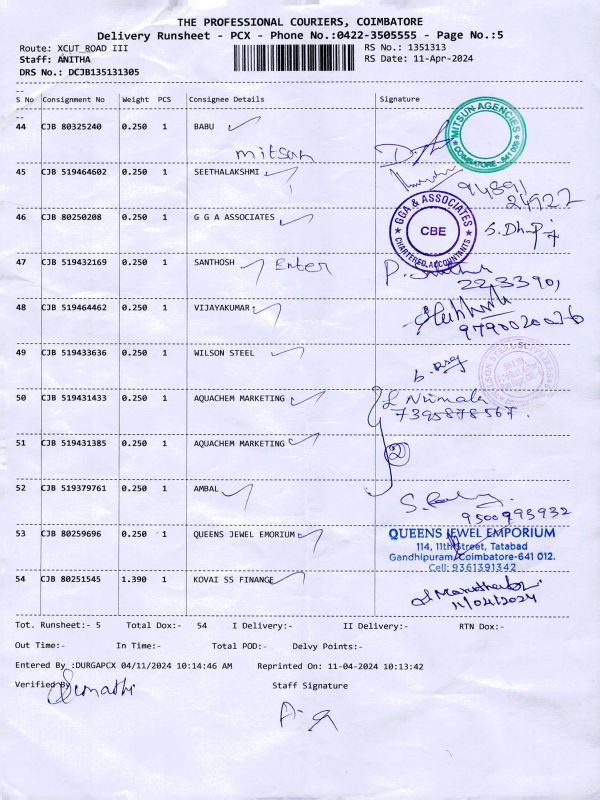 THE PROFESSIONAL COURIERS, COIMBATORE
Delivery Runsheet - PCX - Phone No.:0422-3505555 - Page No.:5
Route: XCUT_ROAD III RS No.: 1351313
Staff: ANITHA RS Date: 11-Apr-2024
DRS No.: DCJB135131305
S No Consignment No Weight PCS Consignee Details Signature
44 CJB 80325240 0.250 1 BABU
mitsun
MITSUN AGENCIES COIMBATORE - 641 009
45 CJB 519464602 0.250 1 SEETHALAKSHMI
94891
24922
46 CJB 80250208 0.250 1 G G A ASSOCIATES
GGA & ASSOCIATES CBE CHARTERED ACCOUNTANTS
47 CJB 519432169 0.250 1 SANTHOSH Enter
2233901
48 CJB 519464462 0.250 1 VIJAYAKUMAR
49 CJB 519433636 0.250 1 WILSON STEEL
50 CJB 519431433 0.250 1 AQUACHEM MARKETING Nirmala
7395878567.
51 CJB 519431385 0.250 1 AQUACHEM MARKETING 2
52 CJB 519379761 0.250 1 AMBAL
9500993932
53 CJB 80259696 0.250 1 QUEENS JEWEL EMORIUM QUEENS JEWEL EMPORIUM
114, 11th Street, Tatabad
Gandhipuram, Coimbatore-641 012.
Cell: 9361391342
54 CJB 80251545 1.390 1 KOVAI SS FINANCE
11/04/2024
Tot. Runsheet:- 5 Total Dox:- 54 I Delivery:- II Delivery:- RTN Dox:-
Out Time:- In Time:- Total POD:- Delvy Points:-
Entered By :DURGAPCX 04/11/2024 10:14:46 AM Reprinted On: 11-04-2024 10:13:42
Verified By Staff Signature